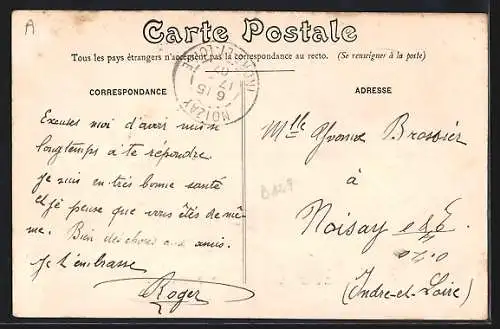 A
Carte Postale
Tous les pays étrangers n'acceptent pas la correspondance au recto. (Se renseigner à la poste)
CORRESPONDANCE
ADRESSE
NOIZAY
6 15
17
Excuses moi d'avoir mis
longtemps à te répondre
Je suis en très bonne santé
et je pense que vous êtes de mê-
me. Bien des choses aux amis.
Je t'embrasse
Roger
Mlle Yvonne Brossier
à
Noisay
(Indre-et-Loire)